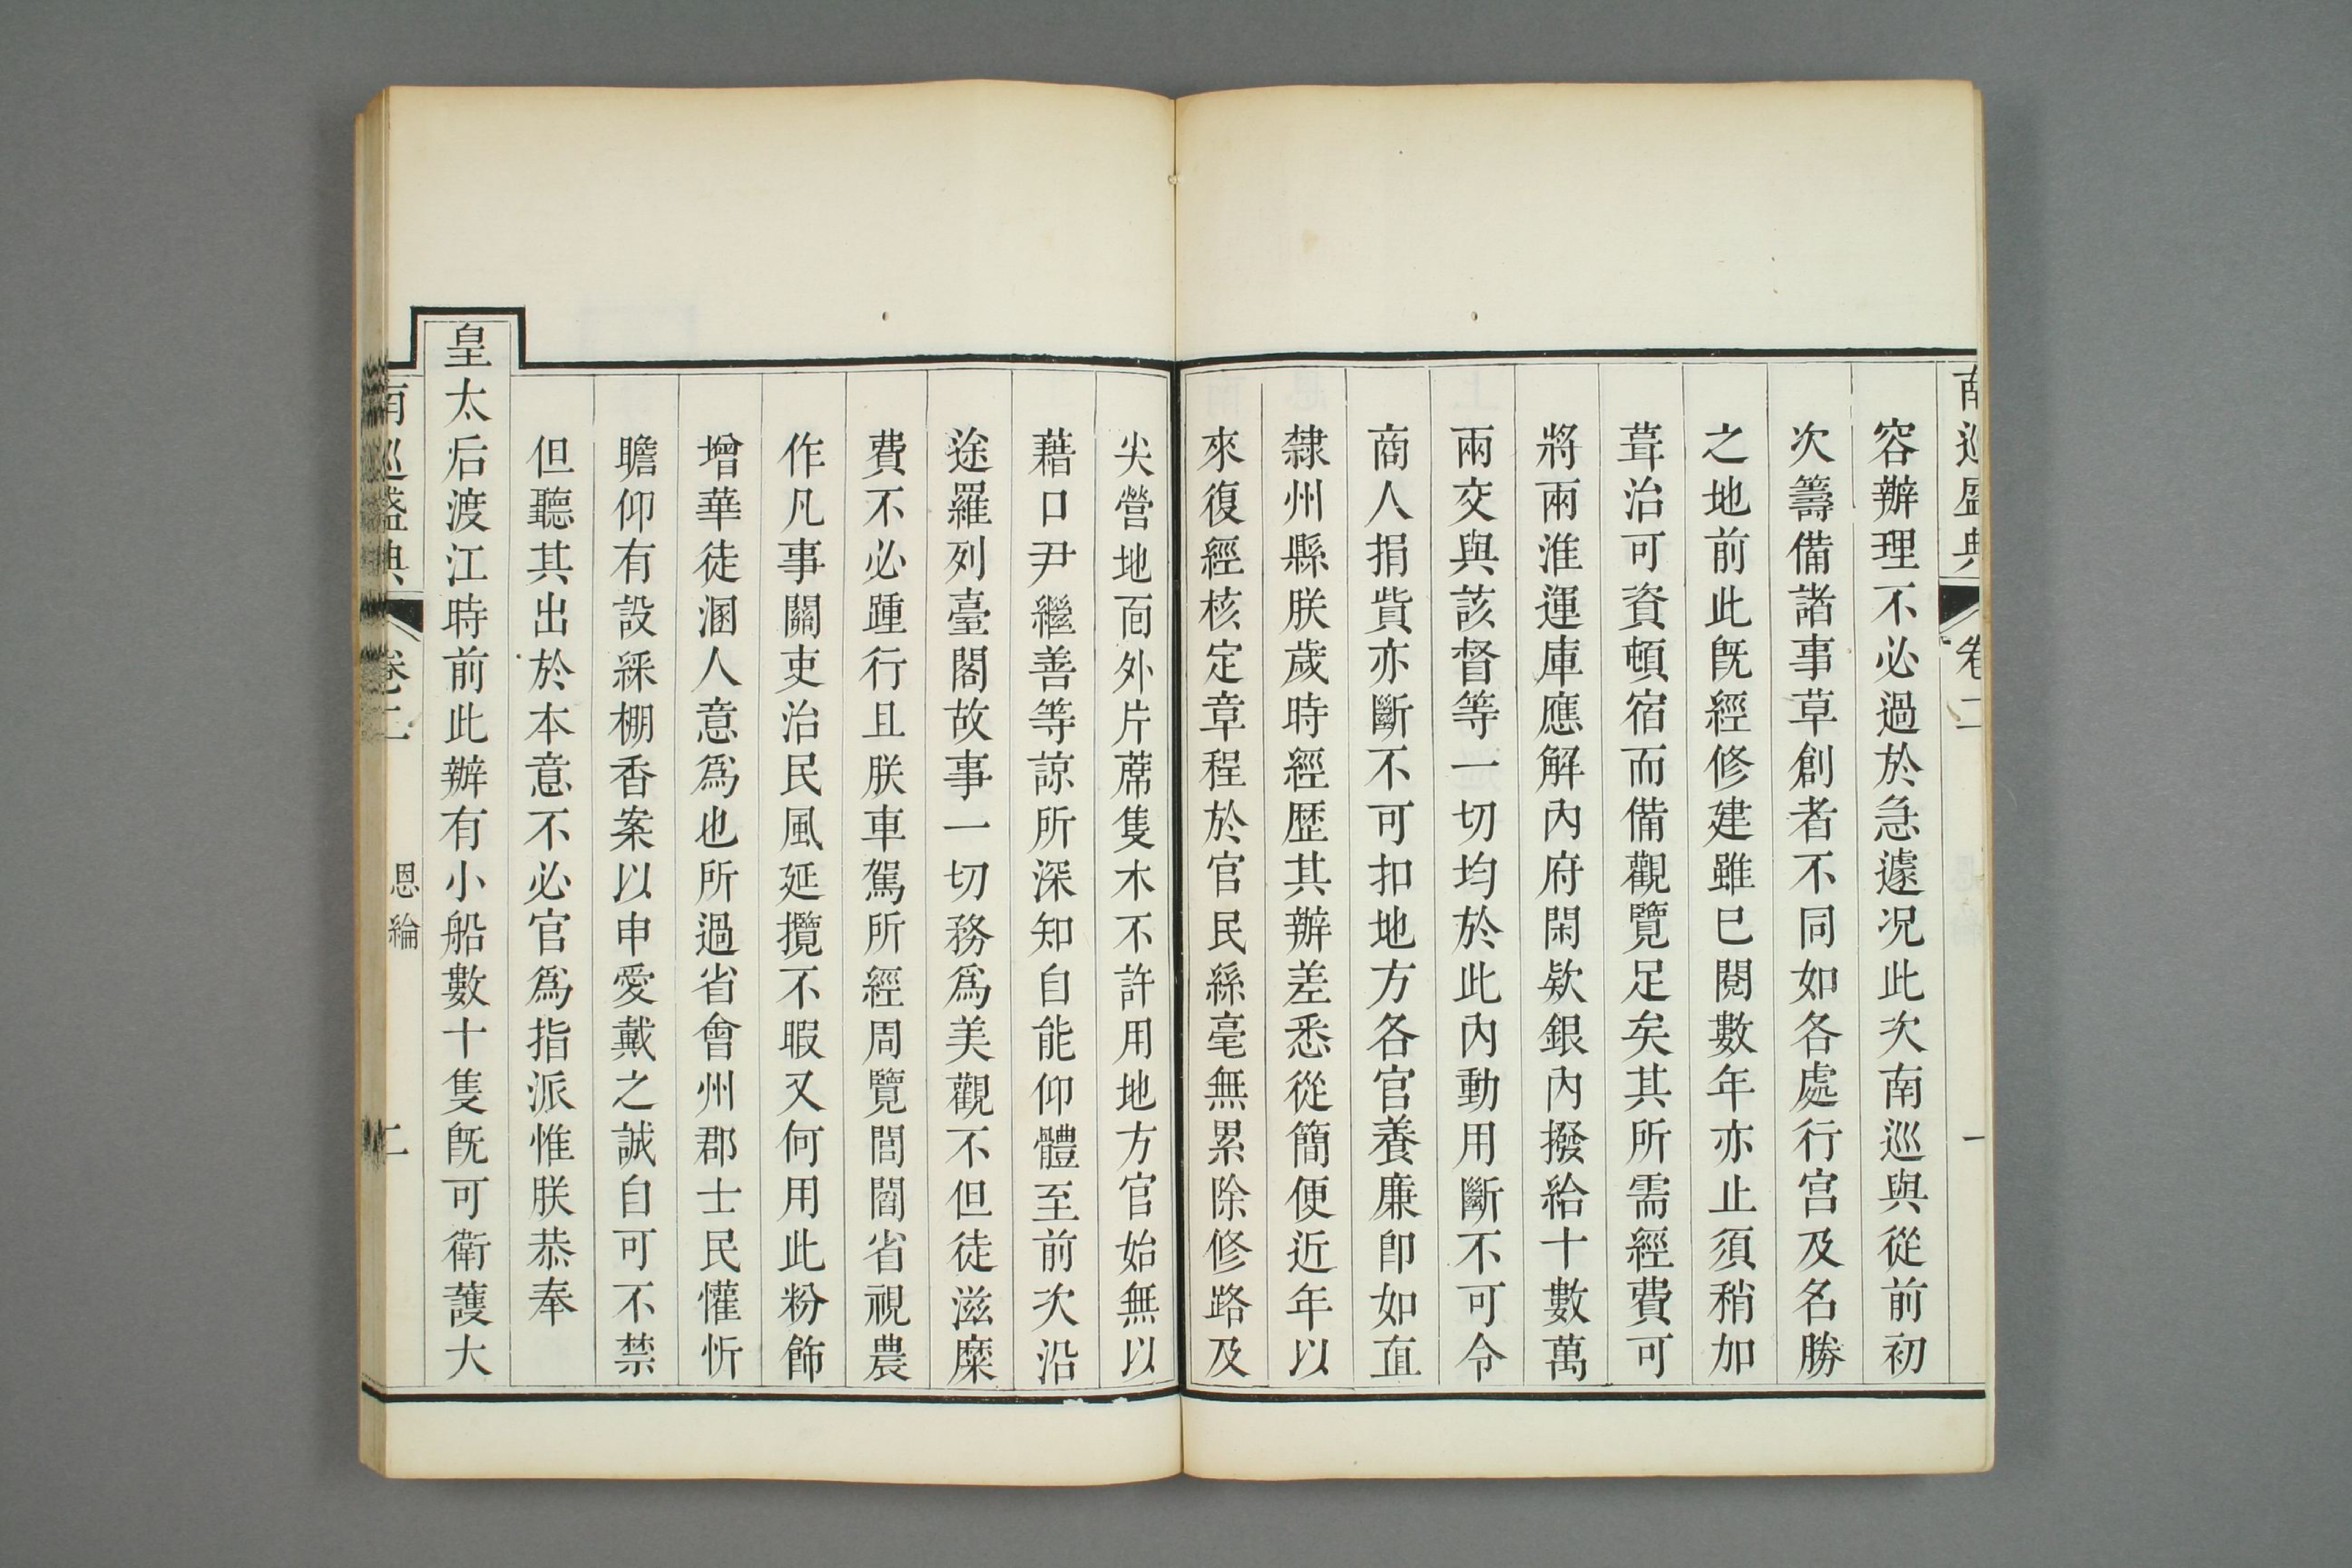 南巡盛典 卷二 一
容辦理不必過於急遽况此次南巡與從前初
次籌備諸事草創者不同如各處行宫及名勝
之地前此旣經修建雖已閱數年亦止須稍加
葺治可資頓宿而備觀覽足矣其所需經費可
將兩淮運庫應解內府閑欵銀內撥給十數萬
兩交與該督等一切均於此內動用斷不可令
商人捐貲亦斷不可扣地方各官養廉卽如直
隸州縣朕歲時經歷其辦差悉從簡便近年以
來復經核定章程於官民絲毫無累除修路及
尖營地面外片蓆隻木不許用地方官始無以
藉口尹繼善等諒所深知自能仰體至前次沿
途羅列臺閣故事一切務爲美觀不但徒滋糜
費不必踵行且朕車駕所經周覽閭閻省視農
作凡事關吏治民風延攬不暇又何用此粉飾
增華徒溷人意爲也所過省會州郡士民懽忻
瞻仰有設綵棚香案以申愛戴之誠自可不禁
但聽其出於本意不必官爲指派惟朕恭奉
皇太后渡江時前此辦有小船數十隻旣可衛護大
南巡盛典 卷二 恩綸 二